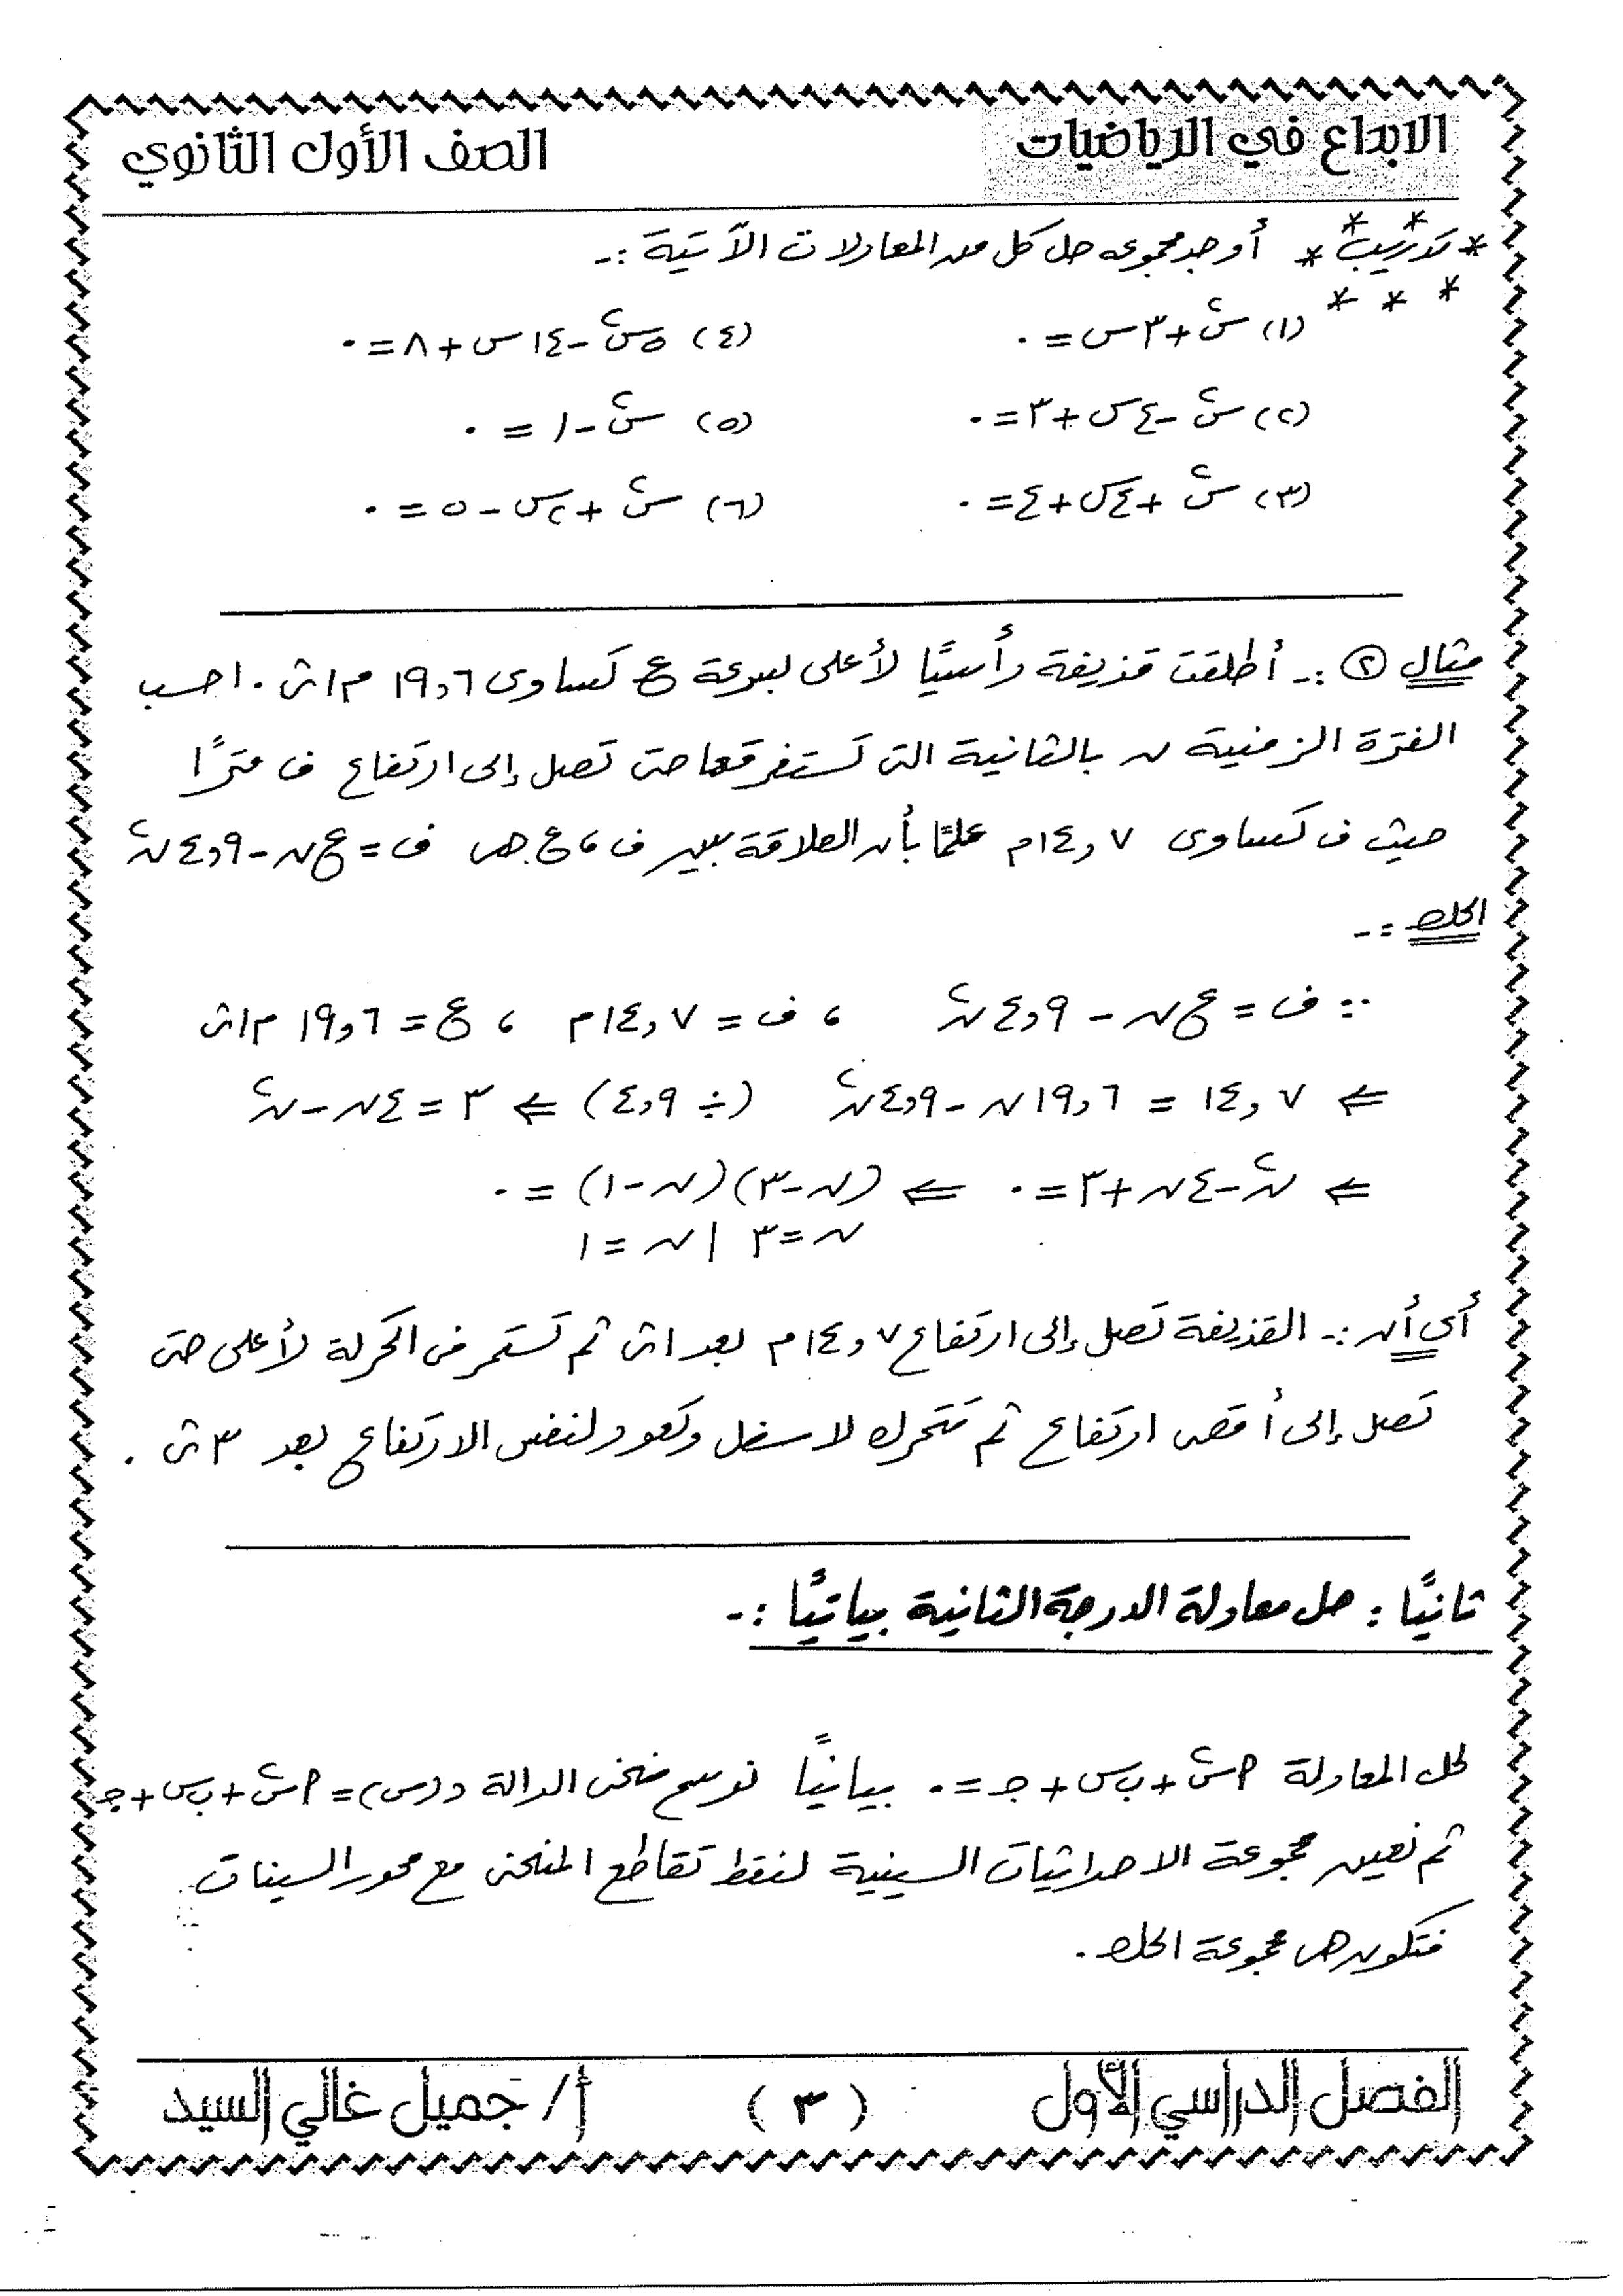 الابداع في الرياضيات
الصف الأول الثانوي
* تدريب * أوجد مجموعه حل كل من المعادلات الآتية :-
(١) س٢ + ٣س = ٠
(٤) ٥س٢ - ١٤س + ٨ = ٠
(٢) س٢ - ٤س + ٣ = ٠
(٥) س٢ - ١ = ٠
(٣) س٢ + ٤س + ٤ = ٠
(٦) س٢ + ٢س - ٥ = ٠
مثال ٢ :- أطلقت قذيفة رأسيًا لأعلى بسرعة ع تساوى ١٩,٦ م/ث . احسب
الفترة الزمنية ن بالثانية التى تستغرقها حتى تصل إلى ارتفاع ف مترًا
حيث ف تساوى ١٤,٧ م علمًا بأن العلاقة بين ف ، ع هى ف = ع ن - ٤,٩ ن٢
الحل :-
∵ ف = ع ن - ٤,٩ ن٢ ، ف = ١٤,٧ م ، ع = ١٩,٦ م/ث
⇐ ١٤,٧ = ١٩,٦ ن - ٤,٩ ن٢ (÷ ٤,٩) ⇐ ٣ = ٤ن - ن٢
⇐ ن٢ - ٤ن + ٣ = ٠ ⇐ (ن - ٣)(ن - ١) = ٠
ن = ٣ | ن = ١
أى أن :- القذيفة تصل إلى ارتفاع ١٤,٧ م بعد ١ث ثم تستمر فى الحركة لأعلى حتى
تصل إلى أقصى ارتفاع ثم تتحرك لاسفل وتعود لنفس الارتفاع بعد ٣ ث .
ثانيًا : حل معادلة الدرجة الثانية بيانيًا :-
لحل المعادلة ٢س٢ + ب س + جـ = ٠ بيانيًا نرسم منحنى الدالة د(س) = ٢س٢ + ب س + جـ
ثم نعين مجموعة الاحداثيات السينية لنقط تقاطع المنحنى مع محور السينات
فتكون هى مجموعة الحل .
الفصل الدراسي الأول
( ٣ )
أ/ جميل غالي السيد